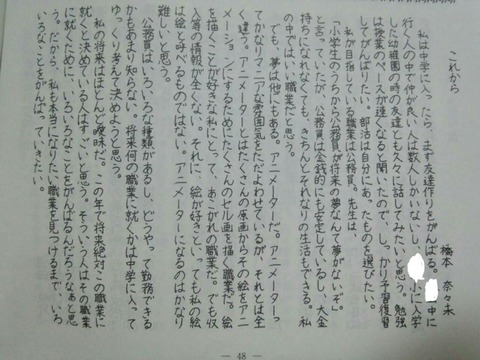 これから
橋本 奈々未
私は中学に入ったら、まず友達作りをがんばる。中に
行く人の中で仲が良い人は数人しかいないし、小に入学
した幼稚園の時の友達とも久々に話してみたいと思う。勉強
は授業のペースが速くなると聞いたので、しっかり予習復習
してがんばりたい。部活は自分にあったものを選びたい。
私が目指している職業は公務員。先生は、
「小学生のうちから公務員が将来の夢なんて夢がないぞ」
と言っていたが、公務員は金銭的にも安定しているし、大金
持ちになれなくても、きちんとそれなりの生活もできる。私
の中ではいい職業だと思う。
でも、夢は他にもある。アニメーターだ。アニメーターっ
てかなりマニアな雰囲気をただよわせているが、それとは全
く違う。アニメーターとはたくさんの原画からその絵をアニ
メーションにするためにたくさんのセル画を描く職業だ。絵
を描くことが好きな私にとって、あこがれの職業だ。でも収
入等の情報が全くない。それに、絵が好きといっても私の絵
は絵と呼べるものではない。アニメーターになるのはかなり
難しいと思う。
公務員はいろいろな種類があるし、どうやって勤務できる
かもあまり知らない。将来何の職業に就くかは中学に入って
ゆっくり考えて決めようと思う。
私の将来はほとんど曖昧だ。この年で将来絶対この職業に
就くと決めている人はすごいと思う。そういう人はその職業
に就くために、いろいろなことをがんばるんだろうなぁと思
う。だから、私も本当になりたい職業を見つけるまで、いろ
いろなことをがんばっていきたい。
— 48 —